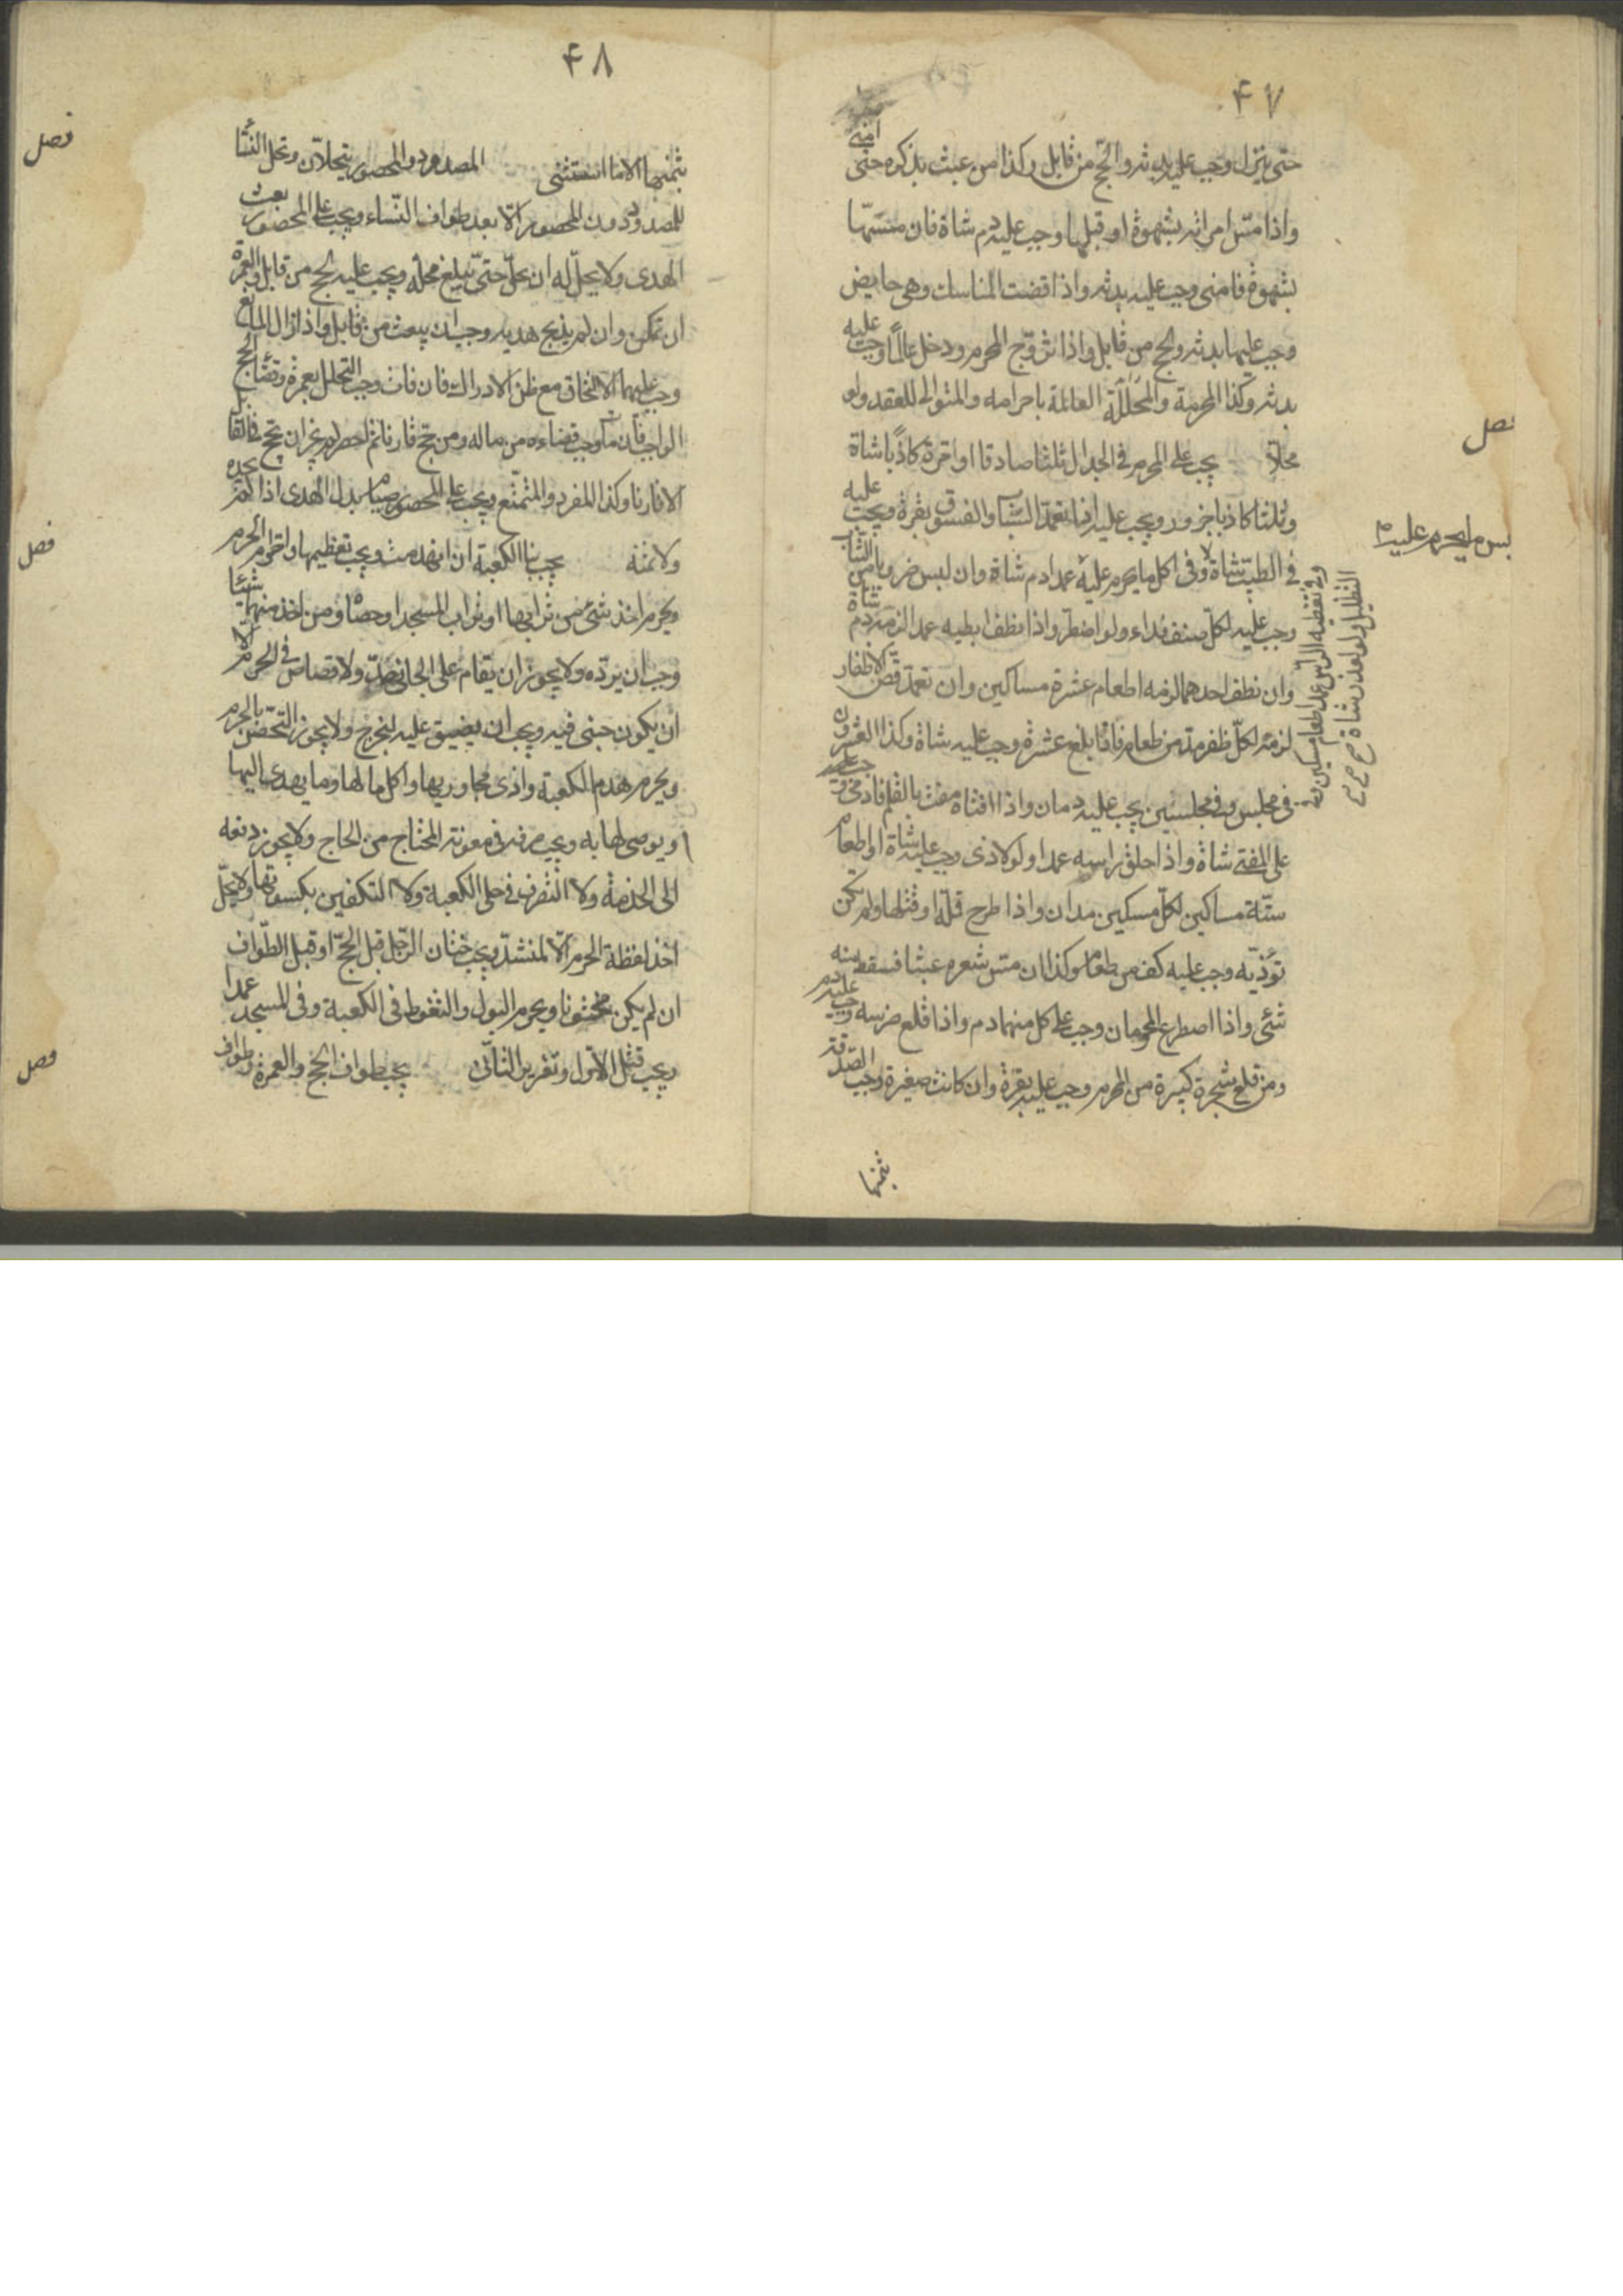 ۴۷
حتى ينزل وجب عليه بدنة والحج من قابل وكذا من عبث بذكره حتى امنى
واذا مسّ امرأته بشهوة او قبلها وجب عليه دم شاة فان مسّها
بشهوة فامنى وجب عليه بدنة واذا قضت المناسك وهى حايض
وجب عليها بدنة والحج من قابل واذا تزوّج المحرم ودخل عالماً وجب عليه
بدنة وكذا المحرمة والمحلّلة العالمة باحرامه والمتوالى للعقد ولو
محلاّ يجب على المحرم فى الجدال ثلثا صادقا او مرّة كاذباً شاة
وثلثا كاذبا جزور ويجب عليه اذا تعمّد السّباب والفسوق بقرة ويجب عليه
فى الطيب شاة وفى اكل ما يحرم عليه عمدا دم شاة وان لبس ضروبا من الثياب
وجب عليه لكلّ صنف فداء ولو اضطرّ واذا نظف ابطيه عمدا لزمه دم شاة
وان نظف احدهما لزمه اطعام عشرة مساكين وان تعمّد قصّ الاظفار
لزمه لكلّ ظفر مدّ من طعام فاذا بلغ عشرة وجب عليه شاة وكذا العشرون
فى مجلس وفى مجلسين يجب عليه دمان واذا افتاه مفت بالقلم فادمى وجب
على المفتى شاة واذا حلق راسه عمدا ولو لاذى وجب عليه شاة او اطعام
ستّة مساكين لكلّ مسكين مدان واذا طرح قملة او قتلها ولم تكن
تؤذيه وجب عليه كف من طعام وكذا ان مسّ شعره عبثا فسقط منه
شئ واذا اصطرع المحرمان وجب على كل منهما دم واذا قلع ضرسه وجب عليه دم
ومن قلع شجرة كبيرة من الحرم وجب عليه بقرة وان كانت صغيرة وجب الصّدقة
بثمنها
فصل
لبس ما يحرم عليه
وفى تغطية الراس عمدا اطعام مسكين
التظليل ولو لعذر شاة
۴۸
بثمنها الا ما استثنى المصدود والمحصور يتحلاّن وتحلّ النساء
للمصدود دون المحصور الاّ بعد طواف النّساء ويجب على المحصور بعث
الهدى ولا يحلّ له ان يحلّ حتّى يبلغ محله ويجب عليه الحج من قابل والعمرة
ان تمكن وان لم يذبح هديه وجب ان يبعث من قابل واذا زال المانع
وجب عليهما الالتحاق مع ظن الادراك فان فات وجب التحلل بعمرة وقضاء الحج
الواجب فان مات وجب قضاءه من ماله ومن حجّ قارنا ثم احصر لم يجز ان يحج فى القابل
الا قارنا وكذا المفرد والمتمتّع ويجب على المحصور صيام بدل الهدى اذا لم يجده
ولا ثمنه يجب بنا الكعبة ان انهدمت ويجب تعظيمها واحترام الحرم
ويحرم اخذ شئ من ترابها او تراب المسجد او حصاه ومن اخذ منهما شيئا
وجب ان يردّه ولا يجوز ان يقام على الجانى حدّ ولا قصاص فى الحرم الا
ان يكون جنى فيه ويجب ان يضيق عليه ليخرج ولا يجوز التحصّن بالحرم
ويحرم هدم الكعبة واذى مجاوريها واكل مالها وما يهدى اليها
ويوصى لها به ويجب صرفه فى معونة المحتاج من الحاج ولا يجوز دفعه
الى الخدمة ولا التصرف فى حلى الكعبة ولا التكفين بكسوتها ولا يحلّ
اخذ لقطة الحرم الاّ لمنشد ويجب ختان الرّجل قبل الحجّ او قبل الطّواف
ان لم يكن مختونا ويحرم البول والتغوط فى الكعبة وفى المسجد عمدا
ويجب قتل الاوّل وتعزير الثانى يجب طواف الحج والعمرة وطواف
فصل
فصل
فصل